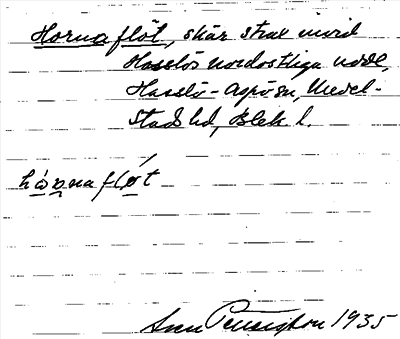 Hornaflöt, skär strax invid
Hasslös nordostliga udde,
Hasslö-Aspö sn, Medel-
stads hd, Blek. l.
håṛnafløt
Sven 1935